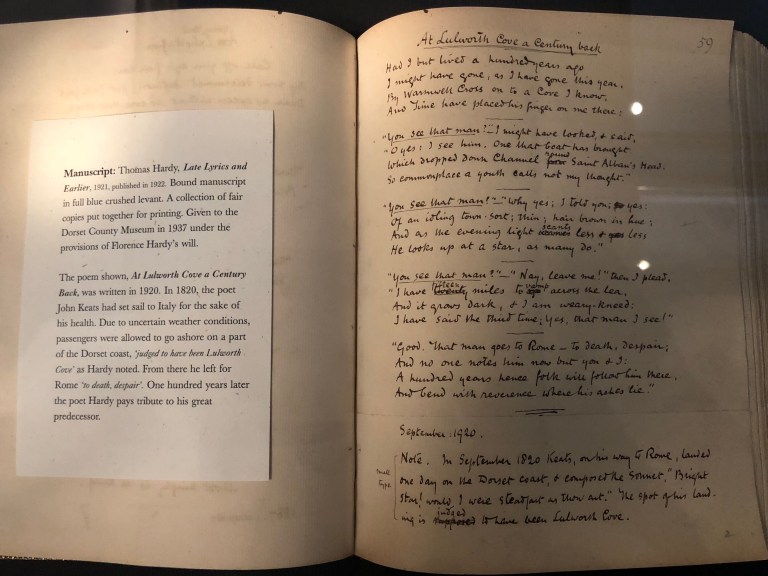 Manuscript: Thomas Hardy, Late Lyrics and
Earlier, 1921, published in 1922. Bound manuscript
in full blue crushed levant. A collection of fair
copies put together for printing. Given to the
Dorset County Museum in 1937 under the
provisions of Florence Hardy's will.
The poem shown, At Lulworth Cove a Century
Back, was written in 1920. In 1820, the poet
John Keats had set sail to Italy for the sake of
his health. Due to uncertain weather conditions,
passengers were allowed to go ashore on a part
of the Dorset coast, 'judged to have been Lulworth
Cove' as Hardy noted. From there he left for
Rome 'to death, despair'. One hundred years later
the poet Hardy pays tribute to his great
predecessor.
59
At Lulworth Cove a Century back
Had I but lived a hundred years ago
I might have gone, as I have gone this year,
By Warmwell Cross on to a Cove I know,
And Time have placed his finger on me there:
"You see that man?" – I might have looked, & said,
"O yes: I see him. One that boat has brought
Which dropped down Channel round Saint Alban's Head.
So commonplace a youth calls not my thought."
"You see that man?" – "Why yes; I told you; yes:
Of an idling town-sort; thin; hair brown in hue;
And as the evening light scants less & less
He looks up at a star, as many do."
"You see that man?" – "Nay, leave me!" then I plead,
"I have fifteen miles to vamp across the lea,
And it grows dark, & I am weary-kneed:
I have said the third time; yes, that man I see!"
"Good. That man goes to Rome – to death, despair;
And no one notes him now but you & I:
A hundred years hence folk will follow him there,
And bend with reverence where his ashes lie."
September: 1920.
small
type
Note. In September 1820 Keats, on his way to Rome, landed
one day on the Dorset coast, & composed the Sonnet, "Bright
Star! would I were steadfast as thou art." The spot of his land-
ing is judged supposed to have been Lulworth Cove.